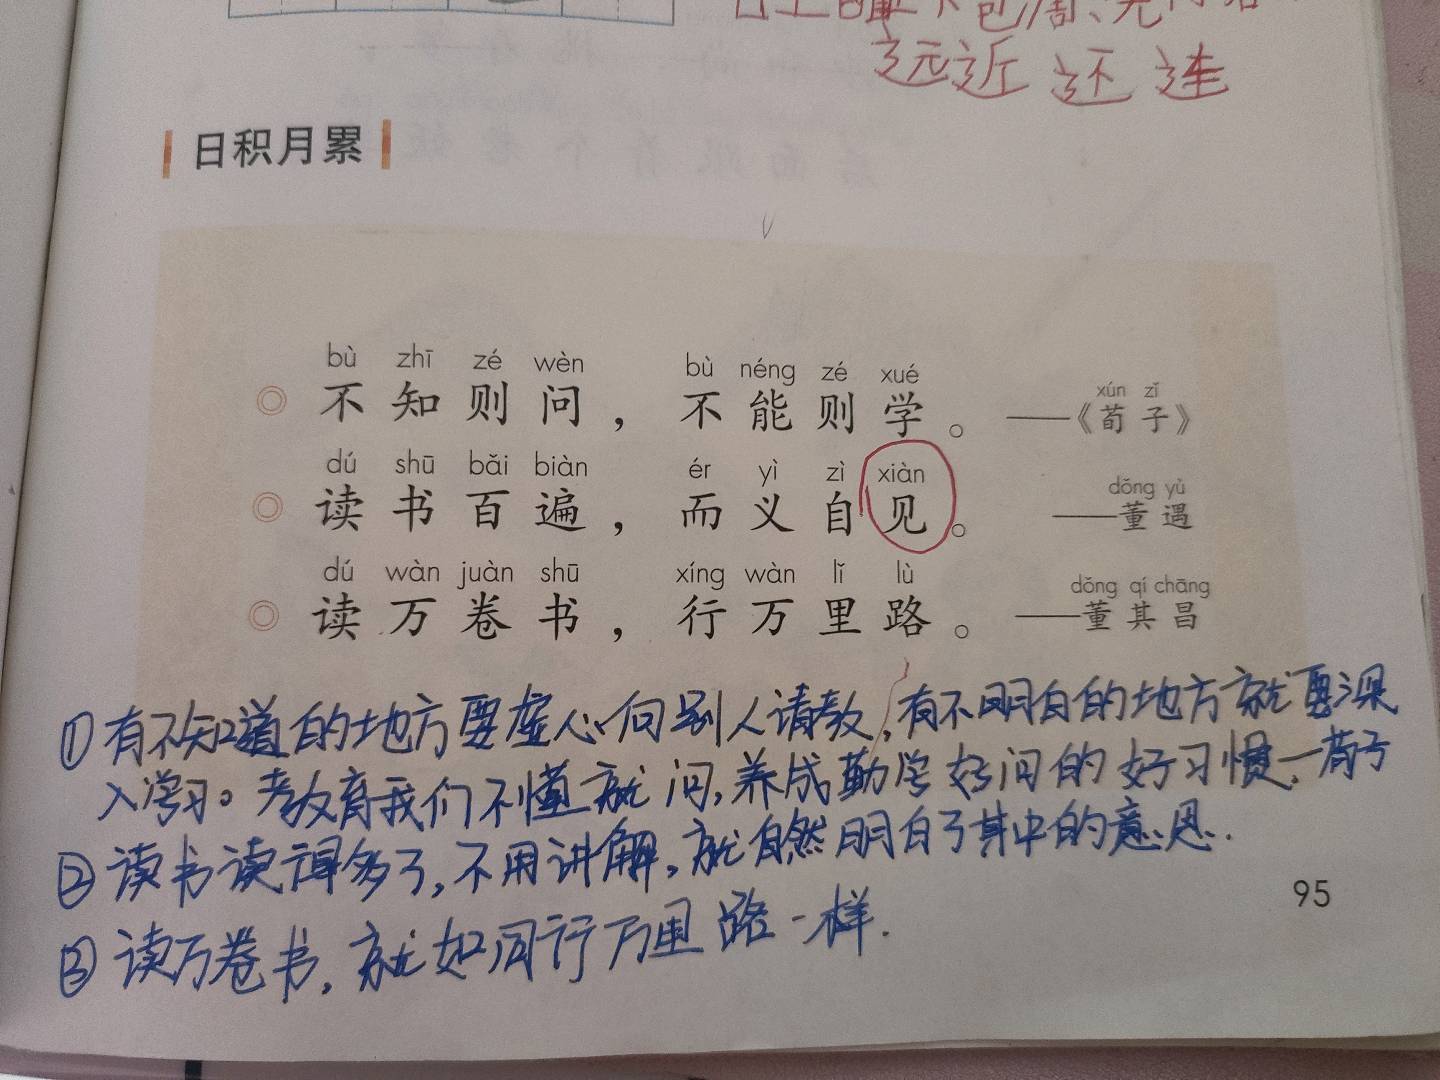 远近还连
日积月累
bù zhī zé wèn bù néng zé xué xún zǐ
◎ 不知则问，不能则学。——《荀子》
dú shū bǎi biàn ér yì zì xiàn dǒng yù
◎ 读书百遍，而义自见。——董遇
dú wàn juàn shū xíng wàn lǐ lù dǒng qí chāng
◎ 读万卷书，行万里路。——董其昌
①有不知道的地方要虚心向别人请教，有不明白的地方就要深
入学习。教育我们不懂就问，养成勤学好问的好习惯，一荀子
②读书读得多了，不用讲解，就自然明白了其中的意思.
95
③读万卷书，就如同行万里路一样.